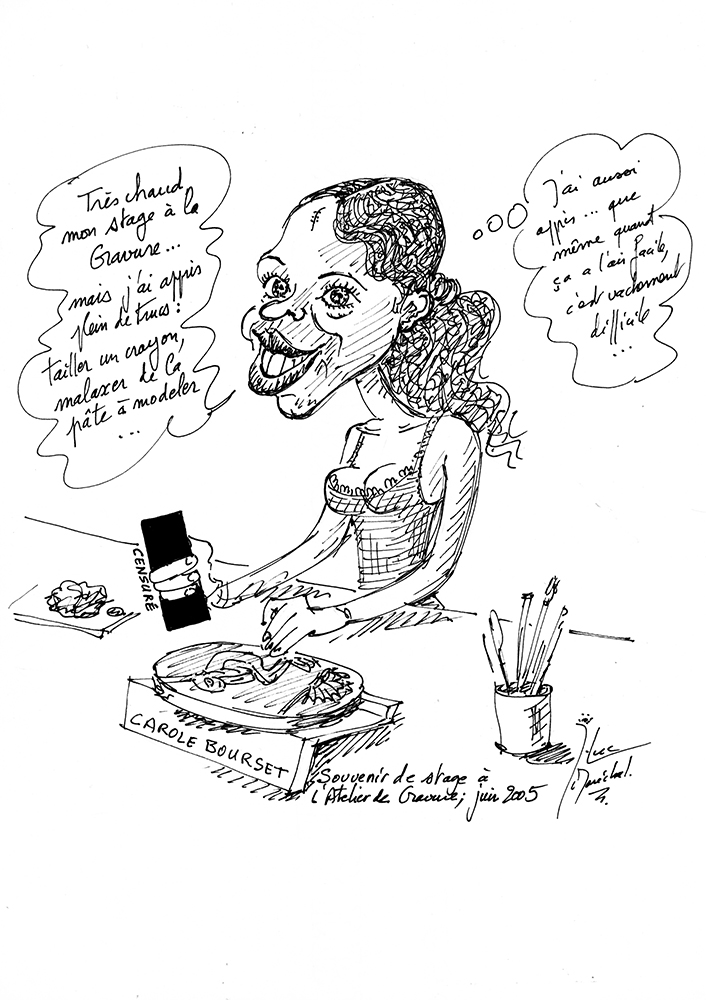 Très chaud
mon stage à la
Gravure...
mais j'ai appris
plein de trucs :
tailler un crayon,
malaxer de la
pâte à modeler
...
J'ai aussi
appris... que
même quant
ça a l'air facile,
c'est vachement
difficile
...
CENSURÉ
CAROLE BOURSET
Souvenir de stage à
l'Atelier de Gravure, juin 2005
Luc
Maréchal.